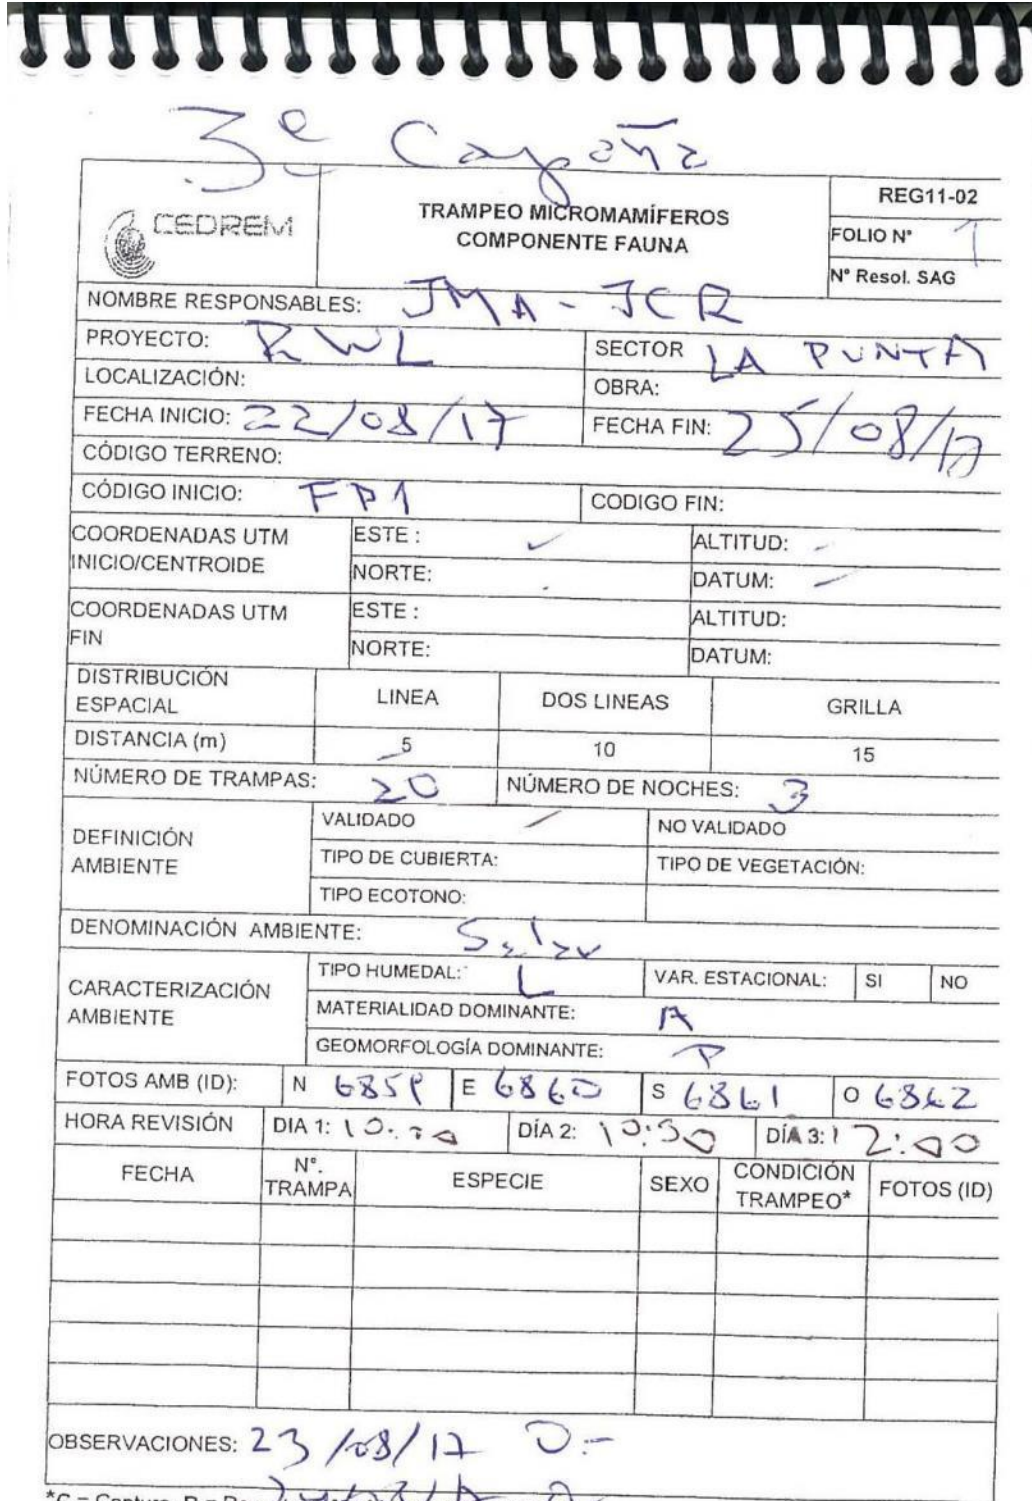 3ª Capaña
CEDREM
TRAMPEO MICROMAMÍFEROS
COMPONENTE FAUNA
REG11-02
FOLIO N° 1
N° Resol. SAG
NOMBRE RESPONSABLES: JMA-JCR
PROYECTO: RWL SECTOR LA PUNTA
LOCALIZACIÓN: OBRA:
FECHA INICIO: 22/08/17 FECHA FIN: 25/08/17
CÓDIGO TERRENO:
CÓDIGO INICIO: FP1 CODIGO FIN:
COORDENADAS UTM INICIO/CENTROIDE ESTE : ✓ ALTITUD: -
NORTE: . DATUM: -
COORDENADAS UTM FIN ESTE : ALTITUD:
NORTE: DATUM:
DISTRIBUCIÓN ESPACIAL LINEA DOS LINEAS GRILLA
DISTANCIA (m) 5 10 15
NÚMERO DE TRAMPAS: 20 NÚMERO DE NOCHES: 3
DEFINICIÓN AMBIENTE VALIDADO / NO VALIDADO
TIPO DE CUBIERTA: TIPO DE VEGETACIÓN:
TIPO ECOTONO:
DENOMINACIÓN AMBIENTE: Salar
CARACTERIZACIÓN AMBIENTE TIPO HUMEDAL: L VAR. ESTACIONAL: SI NO
MATERIALIDAD DOMINANTE: A
GEOMORFOLOGÍA DOMINANTE: P
FOTOS AMB (ID): N 6859 E 6860 S 6861 O 6862
HORA REVISIÓN DIA 1: DÍA 2: 10:50 DÍA 3: 12:00
FECHA N°. TRAMPA ESPECIE SEXO CONDICIÓN TRAMPEO* FOTOS (ID)
OBSERVACIONES: 23/08/17 0.-
*C = Captura, R = 24/08/17 0